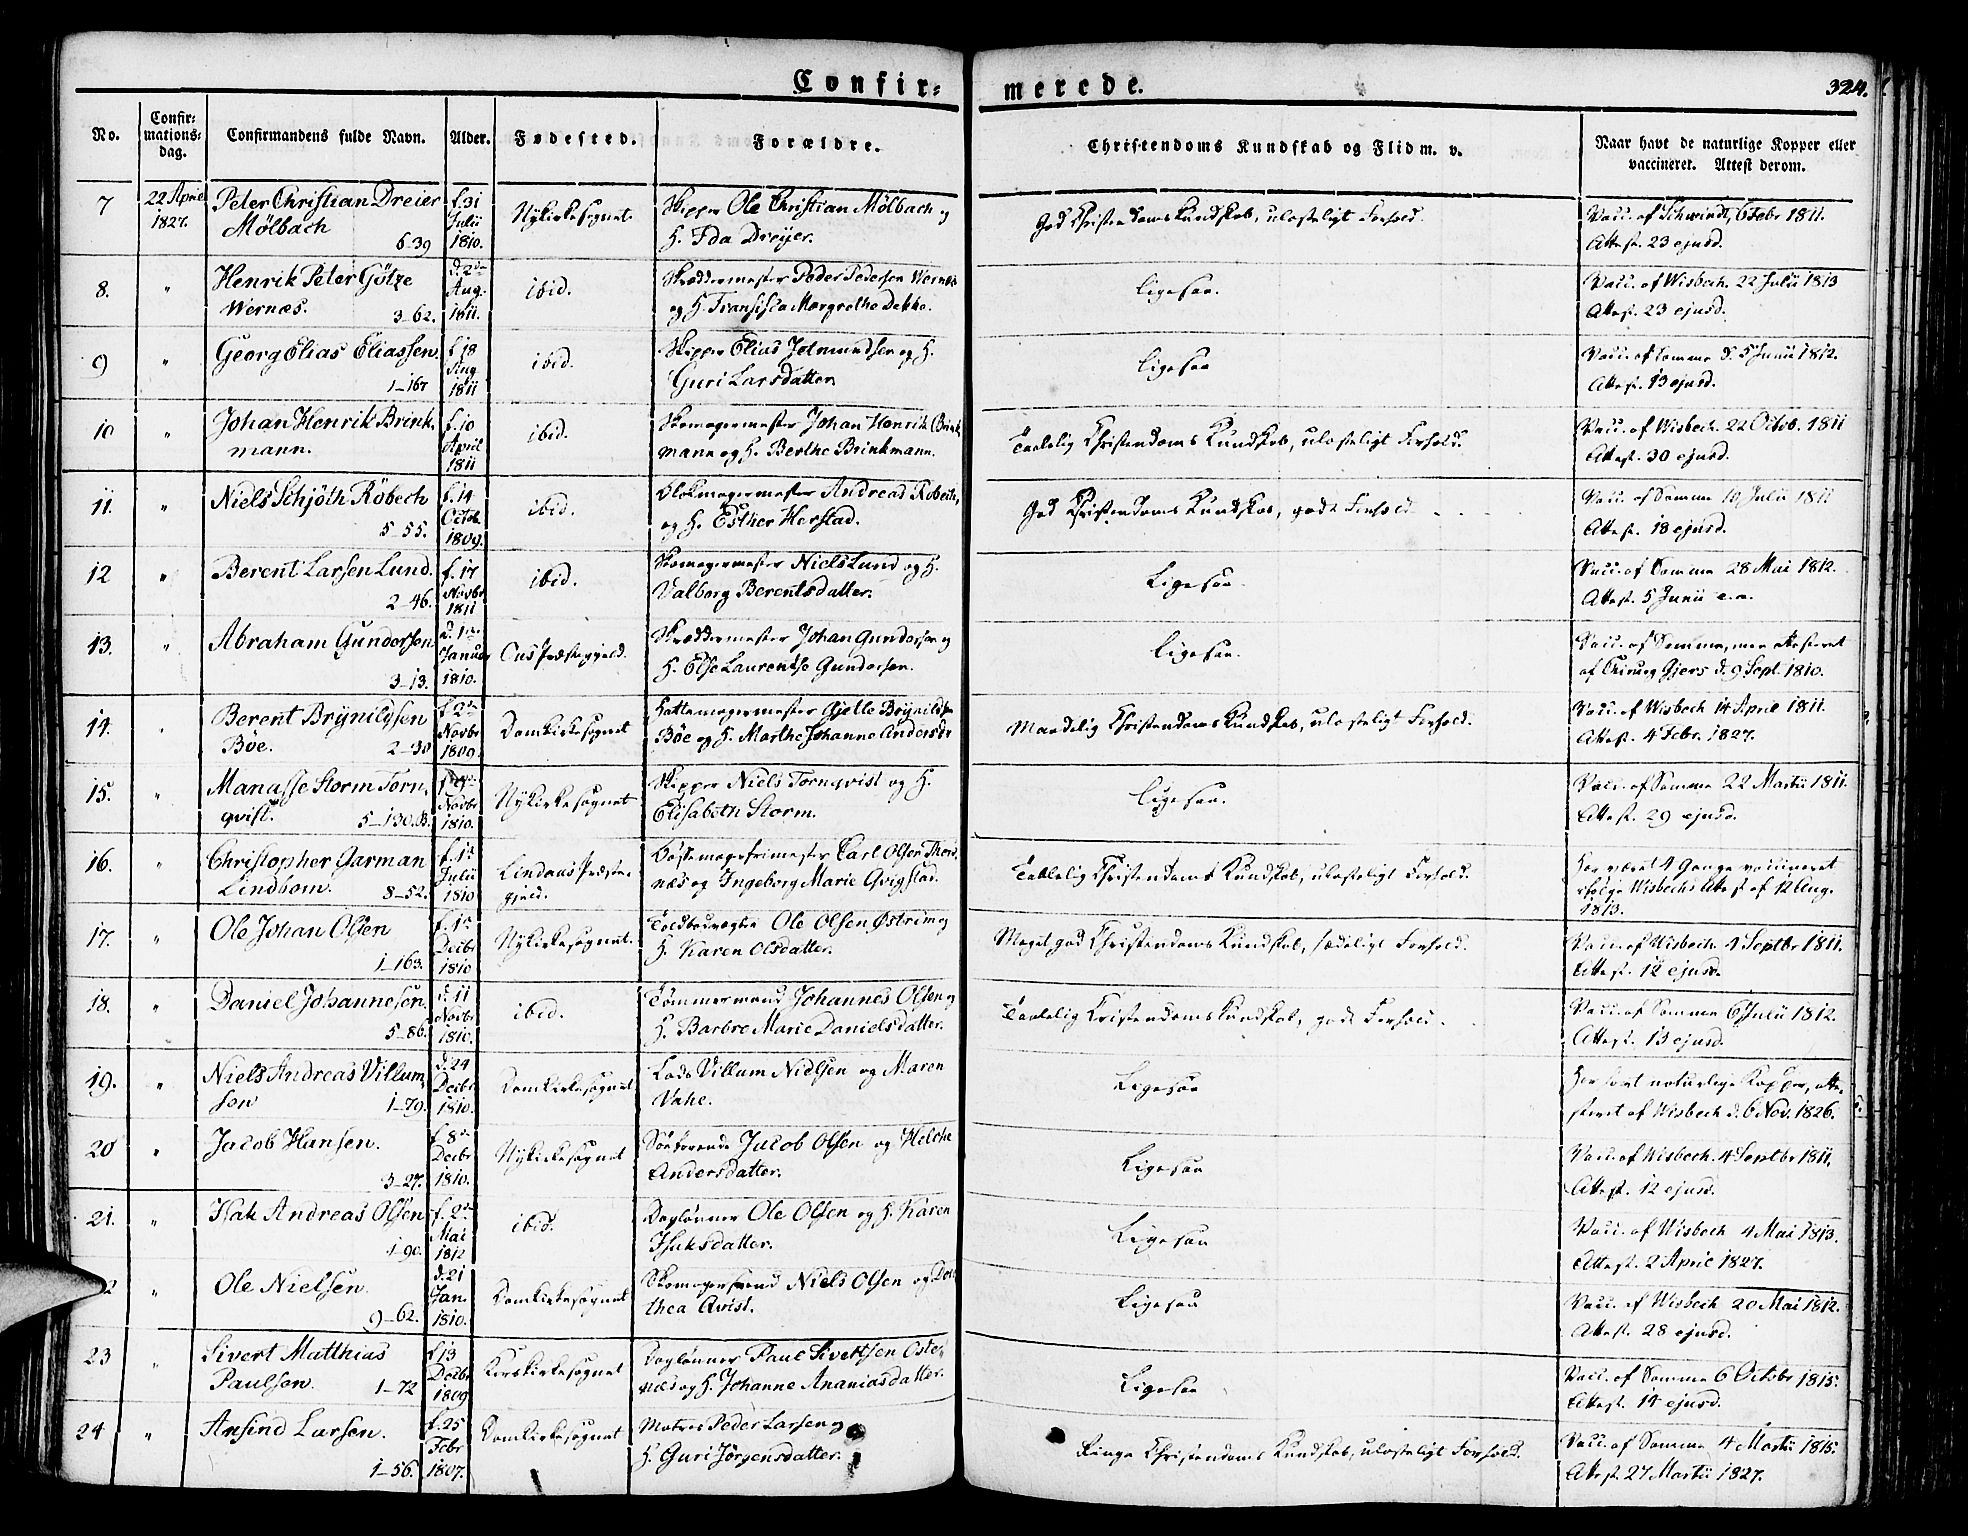 Confir-
merede.
324.
No.
Confir-
mations-
dag.
Confirmandens fulde Navn.
Alder.
Fødested.
Forældre.
Christendoms Kundskab og Flid m. v.
Naar havt de naturlige Kopper eller
vaccineret. Attest derom.
7
22 April
1827.
Peter Christian Dreier
Mølbach
6-39
f. 31
Julii
1810.
Nykirkesognet
Skipper Ole Christian Mølbach og
H. Ida Dreyer.
God Christendomskundskab, ulasteligt Forhold.
Vacc. af Schwindt, 6 Febr 1811.
Attest. 23 ejusd.
8.
"
Henrik Peter Götze
Wernæs.
3-62.
Aug.
1811.
ibid.
Skræddermester Peder Pedersen Wernæs
og H. Fransisca Margrethe Dekke.
Ligesaa.
Vacc. af Wisbech. 22 Julii 1813
Attest. 23 ejusd.
9
"
Georg Elias Eliassen.
1-167
f. 18
Aug.
1811
ibid.
Skipper Elias Jetmundsen og H.
Guri Larsdatter.
Ligesaa
Vacc. af Samme d. 5 Junii 1812.
Attest. 13 ejusd.
10
"
Johan Henrik Brink-
mann.
f. 10
April
1811
ibid.
Skomagermester Johan Henrik Brink
mann og H. Berthe Brinkmann.
Taalelig Christendoms Kundskab, ulasteligt Forhold.
Vacc. af Wisbech. 22 Octob. 1811
Attest. 30 ejusd.
11.
"
Niels Schjöth Röbech
5-55.
f. 14
Octob.
1809.
ibid.
Blokmagermester Andreas Robech,
og H. Esther Herstad.
God Christendoms Kundskab, godt Forhold
Vacc. af Samme 10 Julii 1811
Attest. 18 ejusd.
12
"
Berent Larsen Lund.
2-46.
f. 17
Novbr
1811
ibid.
Skomagermester Niels Lund og H.
Valborg Berentsdatter.
Ligesaa.
Vacc. af Samme 28 Mai 1812.
Attest. 5 Junii e. a.
13.
"
Abraham Gundersen.
3-13.
Januar
1810.
Præstegjeld.
Skræddermester Johan Gundersen og
H. Else Laurentse Gundersen.
Ligesaa.
Vacc. af Samme, men attesteret
af Chirurg Gjers d. 9 Sept. 1810.
14.
"
Berent Brynildsen
Böe.
2-30
Novbr
1809.
Domkirkesognet
Hattemagermester Gjelle Brynildsen
Böe og H. Marthe Johanne Andersdr
Maadelig Christendoms Kundskab, ulasteligt Forhold.
Vacc. af Wisbech 14 April 1811.
Attest. 4 Febr. 1827.
15.
"
Manasse Storm Torn-
qvist.
5-130.B.
Novbr
1810.
Nykirkesognet
Skipper Niels Tornqvist og H.
Elisabeth Storm.
Ligesaa.
Vacc. af Samme 22 Martii 1811.
Attest. 29 ejusd.
16.
"
Christopher Garman
Lindbom.
8-52.
Julii
1810
Lindaas Præste-
gjeld.
Carl Olsen
næs og Ingeborg Marie Qvigstad.
Taalelig Christendoms Kundskab, ulasteligt Forhold.
Har været 4 Gange vaccineret
ifølge Wisbechs Attest af 12 Aug.
1813.
17.
"
Ole Johan Olsen
1-163.
Decbr
1810
Nykirkesognet.
Toldbodvægter Ole Olsen Østrim og
H. Karen Olsdatter.
Meget god Christendoms Kundskab, sædeligt Forhold.
Vacc. af Wisbech. 4 Septbr 1811.
Attest. 12 ejusd.
18.
"
Daniel Johannesen.
5-86.
d. 11
Novbr
1810.
ibid.
Tømmermand Johannes Olsen og
H. Barbre Marie Danielsdatter.
Taalelig Christendoms Kundskab, godt Forhold.
Vacc. af Samme 6 Julii 1812.
Attest. 13 ejusd.
19.
"
Niels Andreas Villum-
sen
1-79.
d. 24
Decbr
1810.
Domkirkesognet
Lods Villum Nielsen og Maren
Vahe.
Ligesaa
Har havt naturlige Kopper, atte-
steret af Wisbech d. 6 Nov. 1826.
20
"
Jacob Hansen.
3-27.
Decbr
1810.
Nykirkesognet
Søefarende Jacob Olsen og Helche
Andersdatter.
Ligesaa
Vacc. af Wisbech. 4 Septbr 1811.
Attest. 12 ejusd.
21.
"
Isak Andreas Olsen
1-90.
Mai
1812
ibid.
Daglønner Ole Olsen og H. Karen
Isaksdatter.
Ligesaa
Vacc. af Wisbech 4 Mai 1813.
Attest. 2 April 1827.
2
"
Ole Nielsen.
9-62.
d. 21
Jan.
1810.
Domkirkesognet
Skomagersvend Niels Olsen og Doro
thea Qvist.
Ligesaa
Vacc. af Wisbech 20 Mai 1812.
Attest. 28 ejusd.
23
"
Sivert Matthias
Paulsen.
1-72
f. 13
Decbr
1809
Korskirkesognet
Daglønner Paul Sivertsen Oster-
næs og H. Johanne Ananiasdatter.
Ligesaa
Vacc. af Samme 6 Octobr 1815.
Attest. 14 ejusd.
24
"
Ansind Larsen.
1-56.
f. 25
Febr
1807.
Domkirkesognet
Matros Peder Larsen og
H. Guri Jörgensdatter.
Ringe Christendoms Kundskab, ulasteligt Forhold.
Vacc. af Samme 4 Martii 1815.
Attest. 27 Martii 1827.